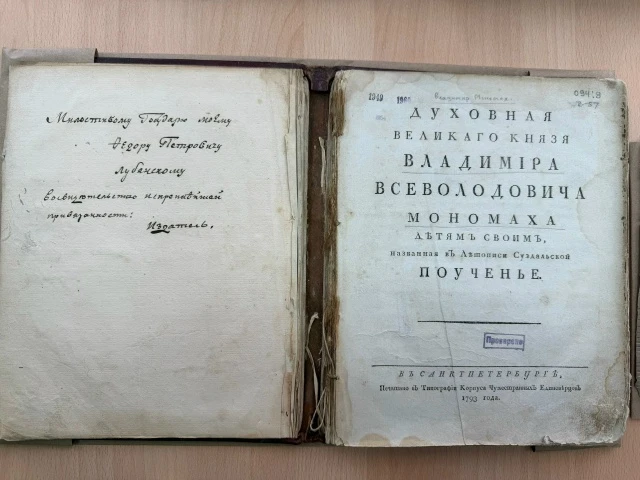 Милостивому Государю моему
Ѳедору Петровичу
Лубяновскому
Во свидѣтельство
Издатель,
1949
ДУХОВНАЯ
ВЕЛИКАГО КНЯЗЯ
ВЛАДИМІРА
ВСЕВОЛОДОВИЧА
МОНОМАХА
ДѢТЯМЪ СВОИМЪ,
названная въ Лѣтописи Суздальской
ПОУЧЕНЬЕ.
Проверено
ВЪ САНКТПЕТЕРБУРГѢ,
Печатано въ Типографіи Корпуса Чужестранныхъ Единовѣрцовъ
1793 года.